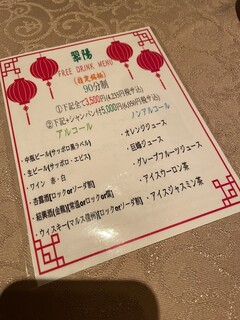 翠陽
FREE DRINK MENU
90分制
①下記全て3,500円(4,235円税サ込)
②下記+シャンパン付5,000円(6,050円税サ込)
アルコール
ノンアルコール
・中瓶ビール(サッポロ黒ラベル)
・生ビール(サッポロ・エビス)
・ワイン 赤・白
・杏露酒【ロックorソーダ割】
・紹興酒(金瓶)【常温orロックor燗】
・ウィスキー(マルス信州)【ロックorソーダ割】
・オレンジジュース
・巨峰ジュース
・グレープフルーツジュース
・アイスウーロン茶
・アイスジャスミン茶